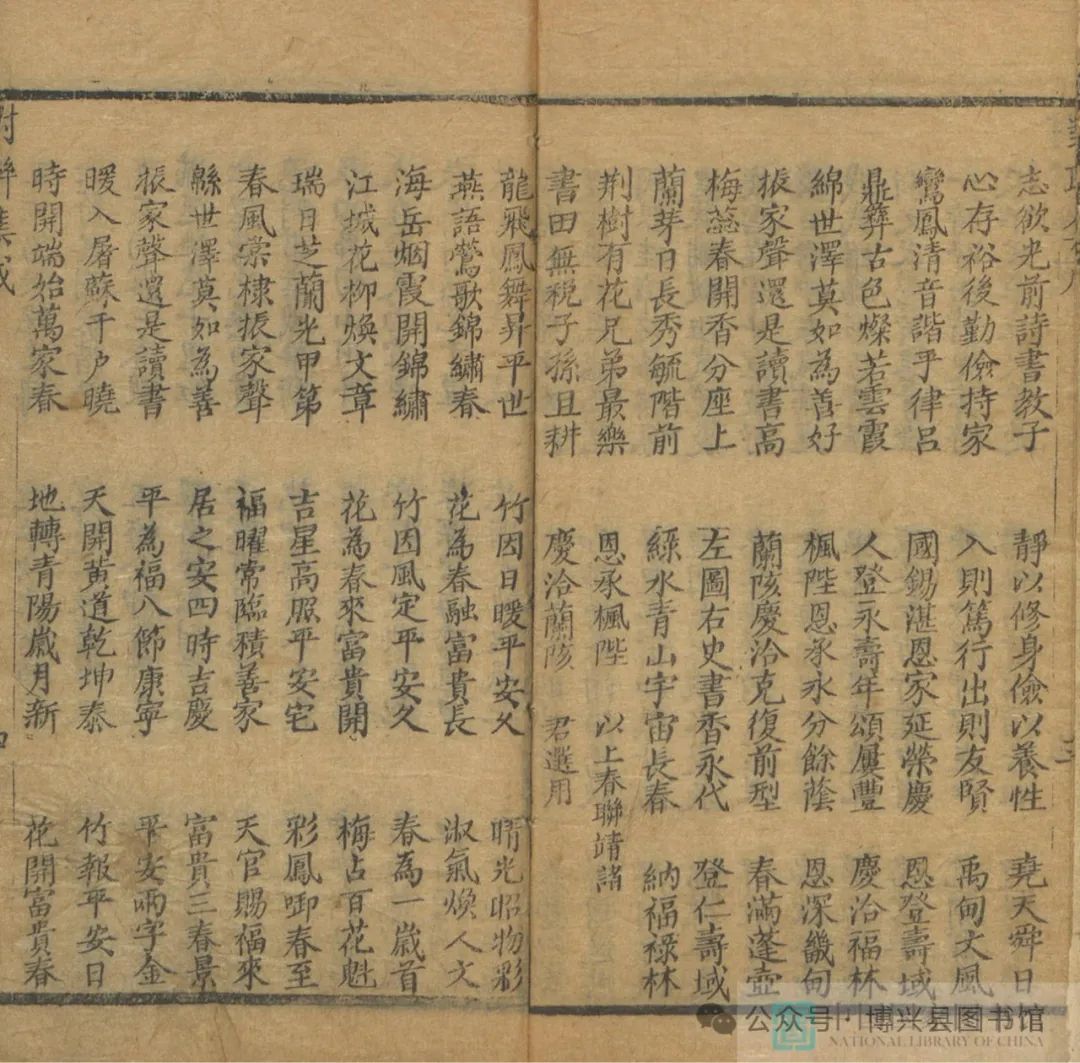 志欲光前詩書教子
心存裕後勤儉持家
鸞鳳清音諧乎律呂
鼎彝古色燦若雲霞
綿世澤莫如為善好
振家聲還是讀書高
梅蕊春開香分座上
蘭芽日長秀毓階前
荆樹有花兄弟最樂
書田無稅子孫且耕
靜以修身儉以養性
入則篤行出則友賢
國錫湛恩家延榮慶
人登永壽年頌屢豐
楓陛恩承永分餘蔭
蘭陔慶洽克復前型
左圖右史書香永代
綠水青山宇宙長春
恩承楓陛
慶洽蘭陔
堯天舜日
禹甸文風
恩登壽域
慶洽福林
恩深畿甸
春滿蓬壺
登仁壽域
納福祿林
以上春聯靖諸
君選用
龍飛鳳舞昇平世
燕語鶯歌錦繡春
海岳烟霞開錦繡
江城花柳煥文章
瑞日芝蘭光甲第
春風棠棣振家聲
緜世澤莫如為善
振家聲還是讀書
暖入屠蘇千户曉
時開端始萬家春
竹因日暖平安久
花為春融富貴長
竹因風定平安久
花為春來富貴開
吉星高照平安宅
福曜常臨積善家
居之安四時吉慶
平為福八節康寧
天開黃道乾坤泰
地轉青陽歲月新
晴光昭物彩
淑氣煥人文
春為一歲首
梅占百花魁
彩鳳啣春至
天官賜福來
富貴三春景
平安兩字金
竹報平安日
花開富貴春
公众号·博兴县图书馆
NATIONAL LIBRARY OF CHINA